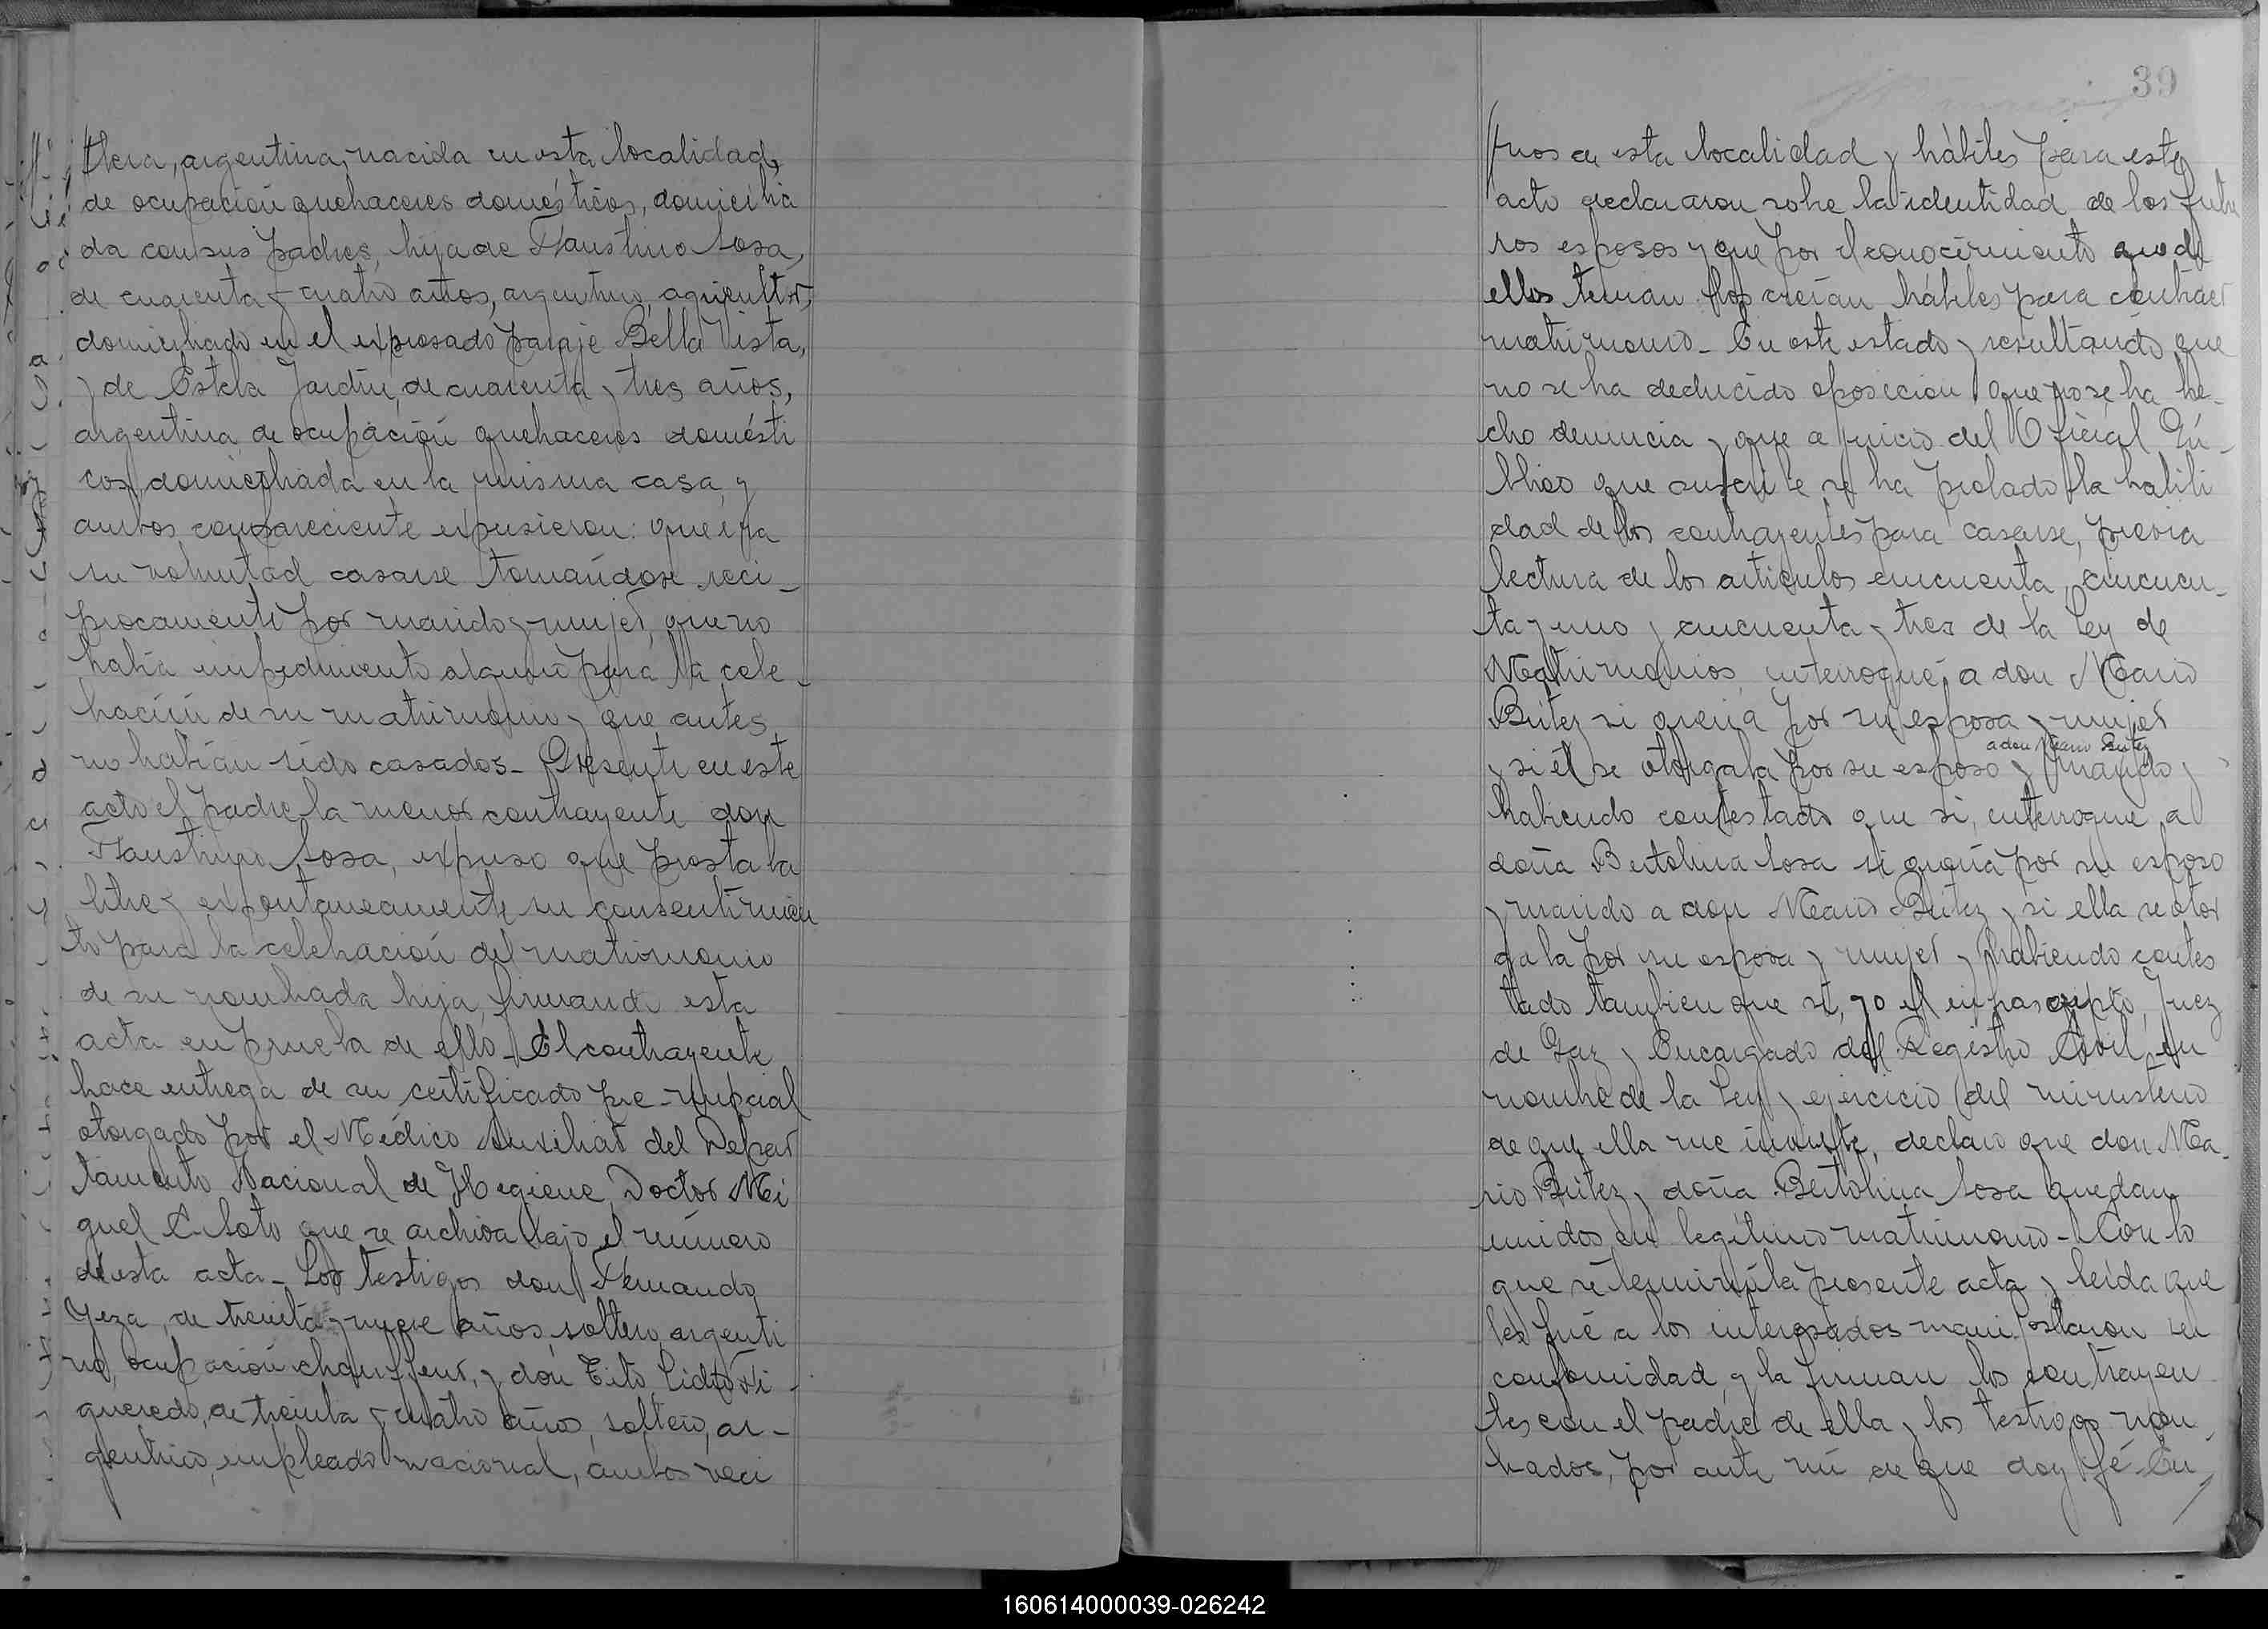 ltera, argentina, nacida en esta localidad,
de ocupación quehaceres domésticos, domicilia
da con sus padres, hija de Faustino Sosa,
de cuarenta y cuatro años, argentino, agricultor,
domiciliado en el expresado paraje Bella Vista,
y de Estela Jardin, de cuarenta y tres años,
argentina, de ocupación quehaceres domésti
cos, domiciliada en la misma casa, y
ambos compareciente expusieron: que era
su voluntad casarse tomándose reci-
procamente por marido y mujer, que no
había impedimento alguno para la cele-
bración de su matrimonio y que antes
no habían sido casados- Presente en este
acto el padre la menor contrayente don
Faustino Sosa, expuso que prestaba
libre y expontaneamente su consentimien
to para la celebración del matrimonio
de su nombrada hija, firmando esta
acta en prueba de ello- El contrayente
hace entrega de su certificado pre-nupcial
otorgado por el Médico Auxiliar del Depar
tamento Nacional de Higiene, Doctor Mi
guel Soto que se archiva bajo el número
de esta acta- Los testigos don Fernando
de treinta y nueve años, soltero, argenti
no, ocupación chauffeur, y don Tito
gueredo, de treinta y cuatro años, soltero, ar-
gentino, empleado nacional, ambos veci
39
nos en esta localidad y hábiles para este
acto declararon sobre la identidad de los futu
ros esposos y que por el conocimiento que de
ellos tenían los creían hábiles para contraer
matrimonio- En este estado y resultando que
no se ha deducido oposición, que no se ha he-
cho denuncia y que a juicio del Oficial Pú-
blico que suscribe se ha probado la habili
dad de los contrayentes para casarse, previa
lectura de los artículos cincuenta, cincuen-
ta y uno y cincuenta y tres de la Ley de
Matrimonios, interrogué a don Mario
Britez si quería por su esposa y mujer
a don Mario Britez
y si él se otorgaba por su esposo y marido y
habiendo contestado que si, interrogue a
doña Bertolina Sosa si quería por su esposo
y marido a don Mario Britez y si ella se otor
gaba por su esposa y mujer y habiendo contes
tado tambien que sí, yo el infrascripto, Juez
de Paz y Encargado del Registro Civil en
nombre de la Ley y ejercicio del ministerio
de que ella me inviste, declaro que don Ma-
rio Britez y doña Bertolina Sosa quedan
unidos en legítimo matrimonio- Con lo
que se terminó la presente acta y leída que
les fué a los interesados manifestaron su
conformidad, y la firman los contrayen
tes con el padre de ella y los testigos nom-
brados, por ante mí de que doy fé- En
160614000039-026242